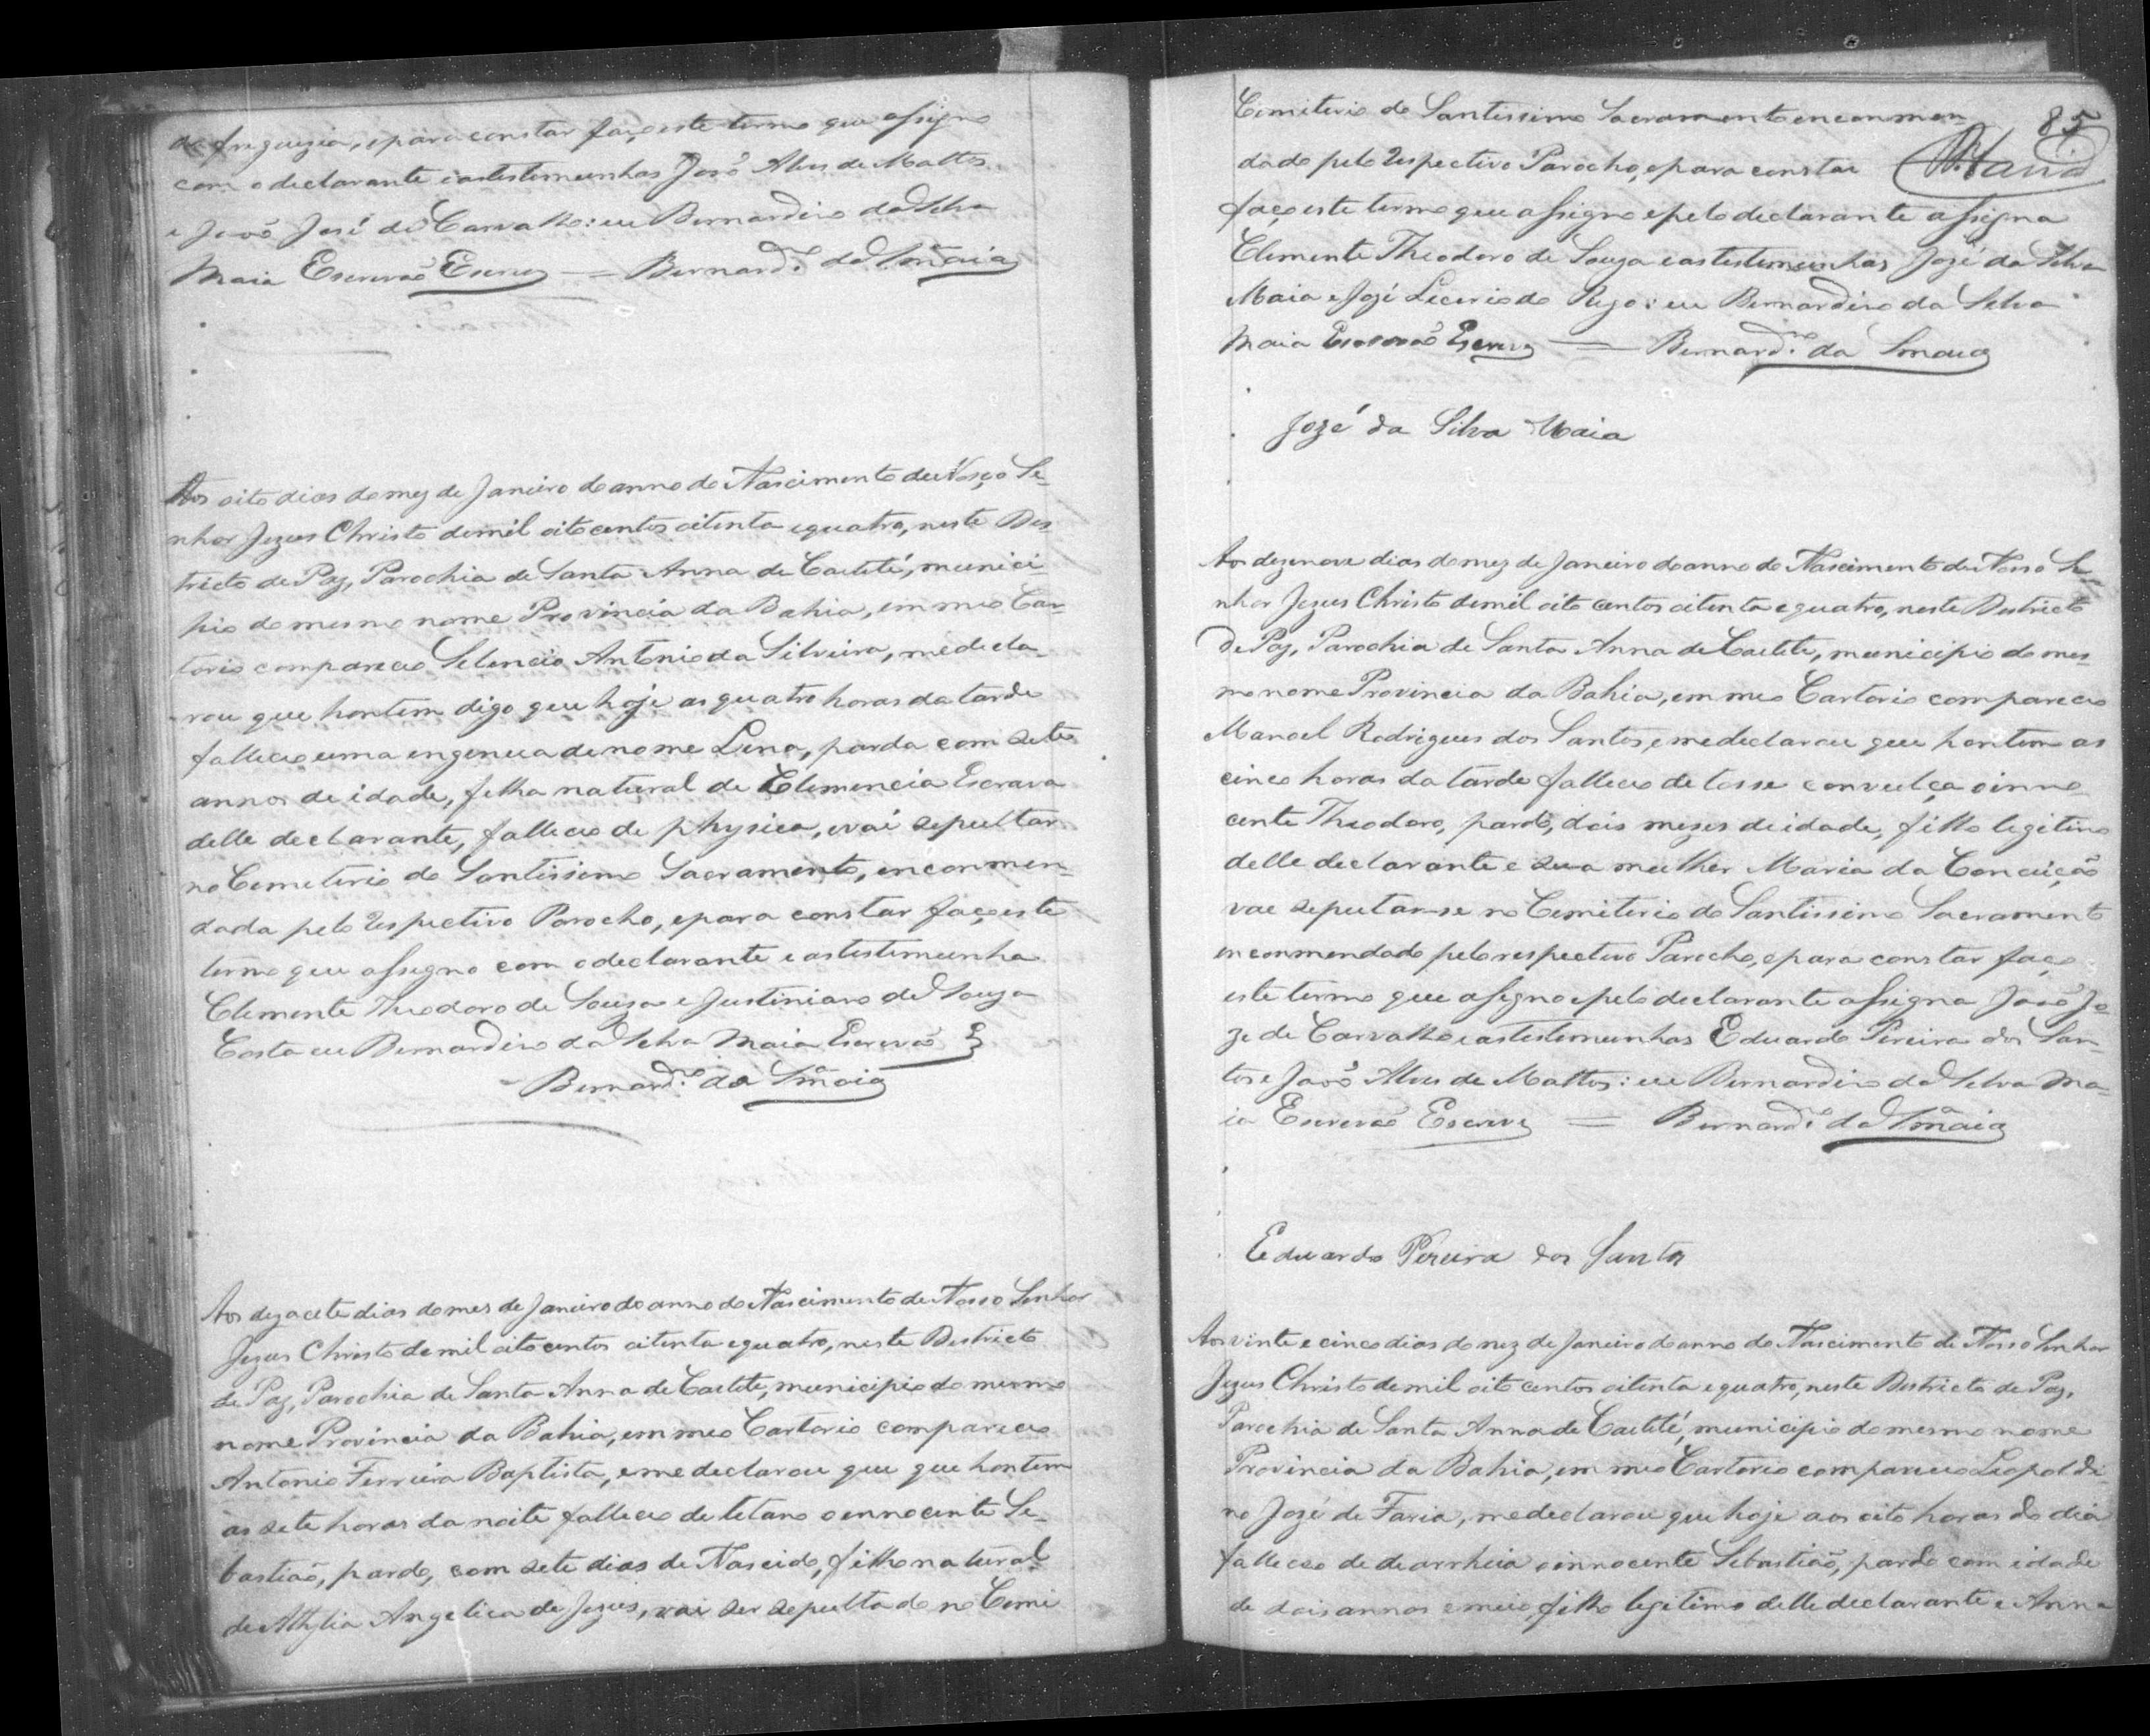 da freguezia, e para constar faço este termo que assigno
com o declarante e as testemunhas João Alves de Mattos
e João José de Carvalho: eu Bernardino da Silva
Maia Escrivão Escrevy = Bernard.no da S.a Maia
Aos oito dias do mez de Janeiro do anno do Nascimento de Nosso Se-
nhor Jezus Christo de mil oito centos oitenta e quatro, neste Des-
tricto de Paz, Parochia de Santa Anna de Caeteté, munici-
pio do mesmo nome Provincia da Bahia, em meo Car-
torio compareceo Silencio Antonio da Silveira, me decla-
rou que hontem digo que hoje as quatro horas da tarde
falleceo uma engenua de nome Lina, parda com sete
annos de idade, filha natural de Clemencia Escrava
delle declarante, falleceo de physica, e vai sepultar
no Cemeterio do Santissimo Sacramento, enconmen-
dada pelo respectivo Parocho, e para constar faço este
termo que assigno com o declarante e as testemunha
Clemente Theodoro de Souza e Justiniano de Souza
Costa eu Bernardino da Silva Maia Escrivão E
Bernard.no da S.a Maia
Aos dezacete dias do mes de Janeiro do anno do Nascimento de Nosso Senhor
Jezus Christo de mil oito centos oitenta e quatro, neste Destricto
de Paz, Parochia de Santa Anna de Caetete, municipio do mesmo
nome Provincia da Bahia, em meo Cartorio compareceo
Antonio Ferreira Baptista, e me declarou que que hontem
as sete horas da noite falleceo de tetano o innocente Se-
bastião, pardo, com sete dias de Nascido, filho natural
de Athylia Angelica de Jezus, vai ser sepultado no Cemi
85
Cemiterio do Santissimo Sacramento enconmen
dado pelo respectivo Parocho, e para constar
faço este termo que assigno e pelo declarante assigna
Clemente Theodoro de Souza e as testemunhas José da Silva
Maia e José Licerio do Rego: eu Bernardino da Silva
Maia Escrivão Escrevy = Bernard.no da S.a Maia
Jozé da Silva Maia
Aos dezenove dias do mez de Janeiro do anno do Nascimento de Nosso Se-
nhor Jezus Christo de mil oito centos oitenta e quatro, neste Destricto
de Paz, Parochia de Santa Anna de Caetete, municipio do mes-
mo nome Provincia da Bahia, em meo Cartorio compareceo
Manoel Rodrigues dos Santos, e me declarou que hontem as
cinco horas da tarde falleceo de tosse convulça o inno-
cente Theodoro, pardo, dois mezes de idade, filho legitimo
delle declarante e sua mulher Maria da Conceição
vae sepultar-se no Cemiterio do Santissimo Sacramento
enconmendado pelo respectivo Parocho, e para constar faço
este termo que assigno e pelo declarante assigna João Jo-
ze de Carvalho e as testemunhas Eduardo Pereira dos San-
tos e João Alves de Mattos: eu Bernardino da Silva Ma-
ia Escrivão Escrevy = Bernard.no da S.a Maia
Eduardo Pereira dos Santos
Aos vinte e cinco dias do mez de Janeiro do anno do Nascimento de Nosso Senhor
Jezus Christo de mil oito centos oitenta e quatro, neste Destricto de Paz,
Parochia de Santa Anna de Caeteté, municipio do mesmo nome
Provincia da Bahia, em meo Cartorio compareceo Leopoldi-
no José de Faria, me declarou que hoje aos oito horas do dia
falleceo de dearrheia o innocente Sebastião, pardo com idade
de dois annos e meio, filho legitimo delle declarante e Anna